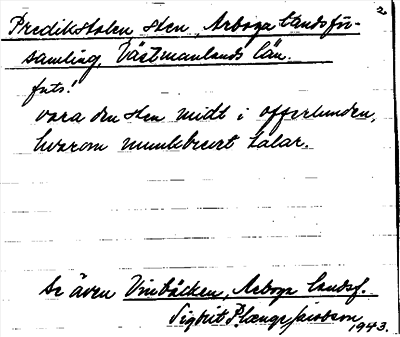 2
Predikstolen, sten, Arboga landsför-
samling, Västmanlands län.
forts.
vara den sten midt i offerlunden,
hvarom munkbrevet talar.
Se även Vinbäcken, Arboga landsf.
Sigbrit Plænge Jacobson
1943.